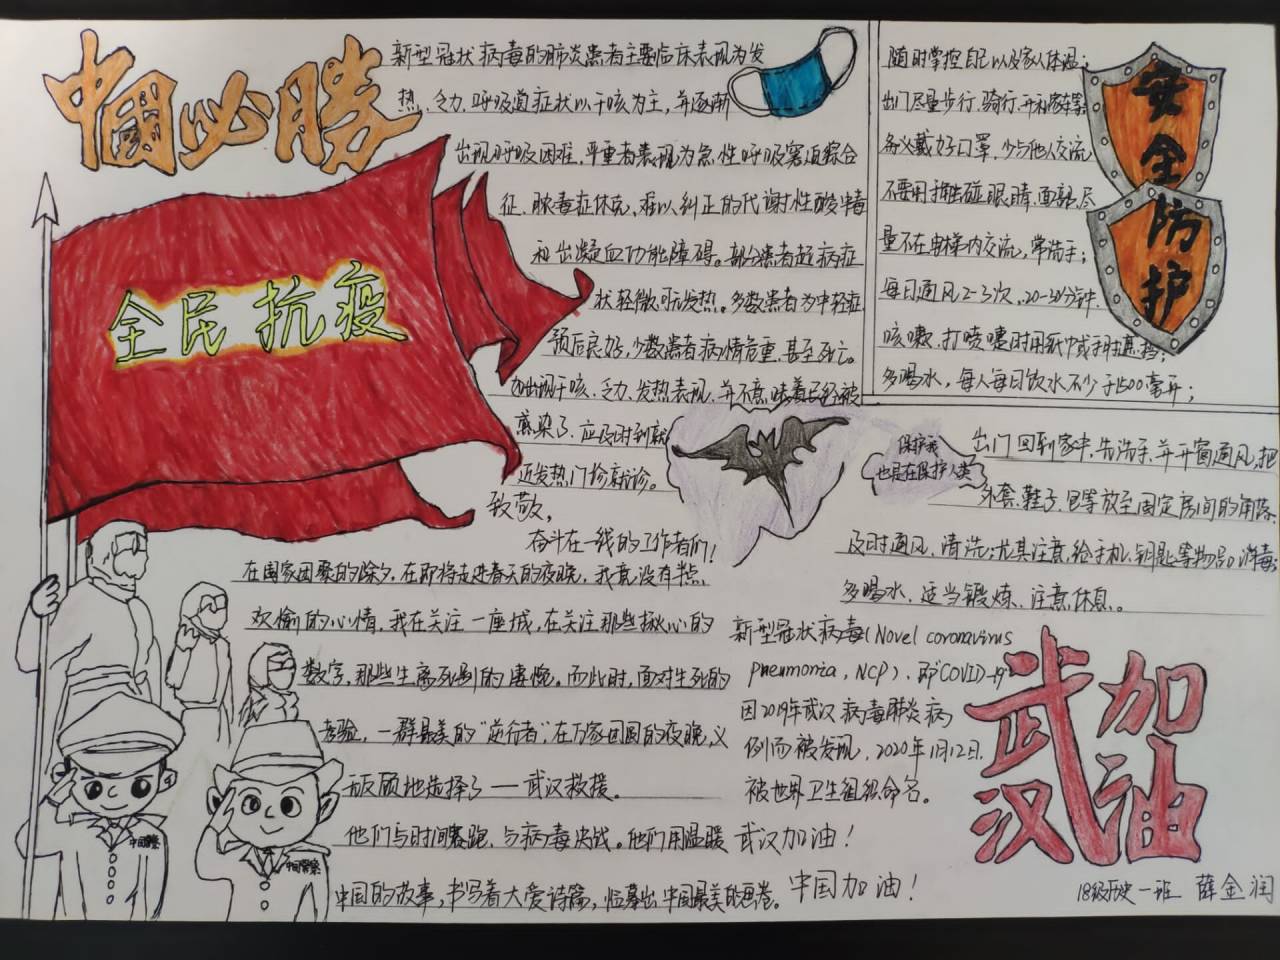 中國必勝
全民抗疫
新型冠状病毒的肺炎患者主要临床表现为发
热、乏力,呼吸道症状以干咳为主,并逐渐
出现呼吸困难,严重者表现为急性呼吸窘迫综合
征、脓毒症休克,难以纠正的代谢性酸中毒
和出凝血功能障碍。部分患者起病症
状轻微,可无发热。多数患者为中轻症,
预后良好,少数患者病情危重,甚至死亡。
如出现干咳、乏力、发热表现,并不意味着已经被
感染了,应及时到就
近发热门诊就诊。
致敬,
奋斗在一线的工作者们!
在国家团聚的除夕,在即将走进春天的夜晚,我竟没有半点
欢愉的心情,我在关注一座城,在关注那些揪心的
数字,那些生离死别的凄惨。而此时,面对生死的
考验,一群最美的“逆行者”,在万家团圆的夜晚,义
无反顾地选择了——武汉救援。
他们与时间赛跑,与病毒决战。他们用温暖
中国的故事,书写着大爱诗篇,临摹出中国最美的画卷。
中国警察
中国警察
随时掌控自己以及家人体温;
出门尽量步行、骑行、开私家车等;
务必戴好口罩,少与他人交流,
不要用手触碰眼睛、面部,尽
量不在电梯内交流,常洗手;
每日通风2-3次,20-30分钟.
咳嗽、打喷嚏时用纸巾或手肘遮挡;
多喝水,每人每日饮水不少于1500毫升;
安全
防护
保护我
也是在保护人类
出门回到家中,先洗手,并开窗通风,把
外套、鞋子、包等放至固定房间的角落,
及时通风、清洗;尤其注意给手机、钥匙等物品消毒;
多喝水、适当锻炼、注意休息。
新型冠状病毒(Novel coronavirus
Pneumonia,NCP),即“COVID-19”
因2019年武汉病毒肺炎病
例而被发现,2020年1月12日,
被世界卫生组织命名。
武汉加油!
中国加油!
武汉
加油
18级历史一班 薛金润